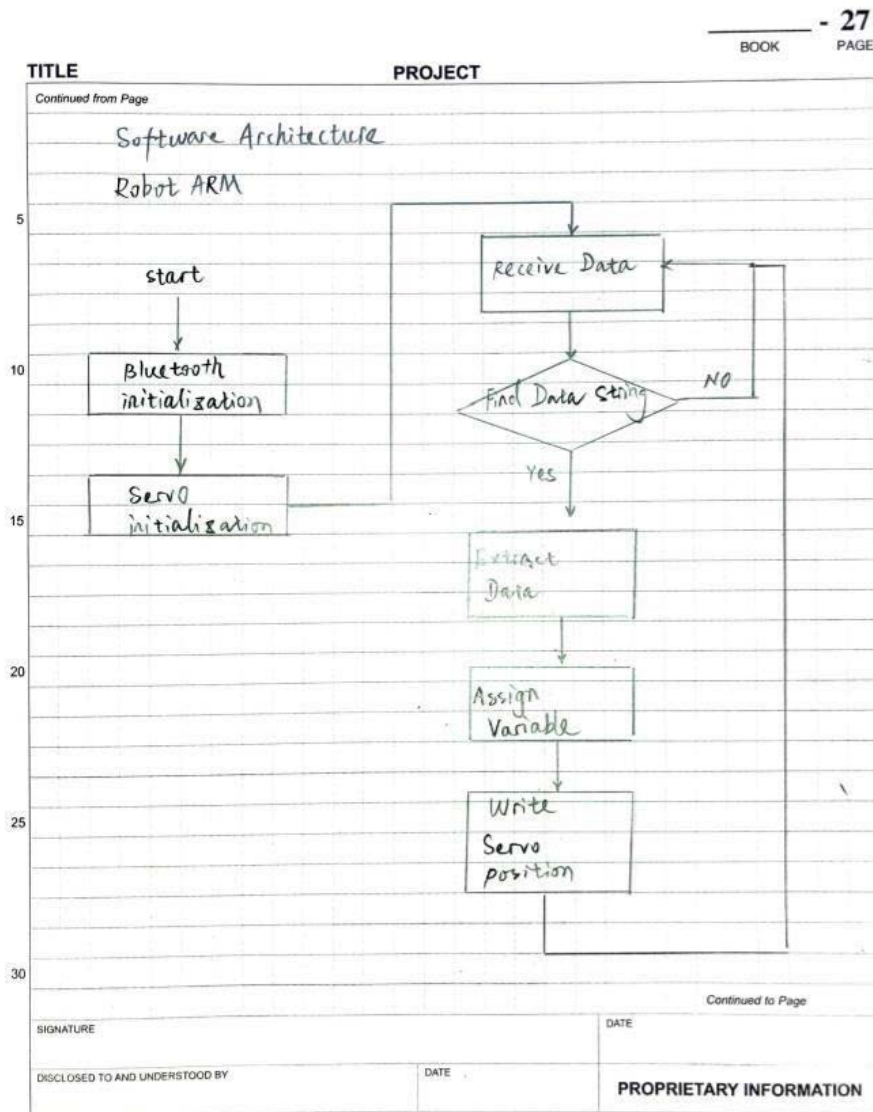 - 27
BOOK PAGE
TITLE PROJECT
Continued from Page
Software Architecture
Robot ARM
5
start
Bluetooth
initialization
Servo
initialization
Receive Data
Find Data String
NO
Yes
Extract
Data
Assign
Variable
Write
Servo
position
10
15
20
25
30
Continued to Page
SIGNATURE
DATE
DISCLOSED TO AND UNDERSTOOD BY
DATE
PROPRIETARY INFORMATION